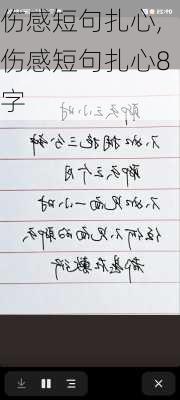 伤感短句扎心,
伤感短句扎心8
字
聊天三小时
不如相拥三分钟
聊天三个月
不如见面一小时
任何不见面的聊天
都是在敷衍